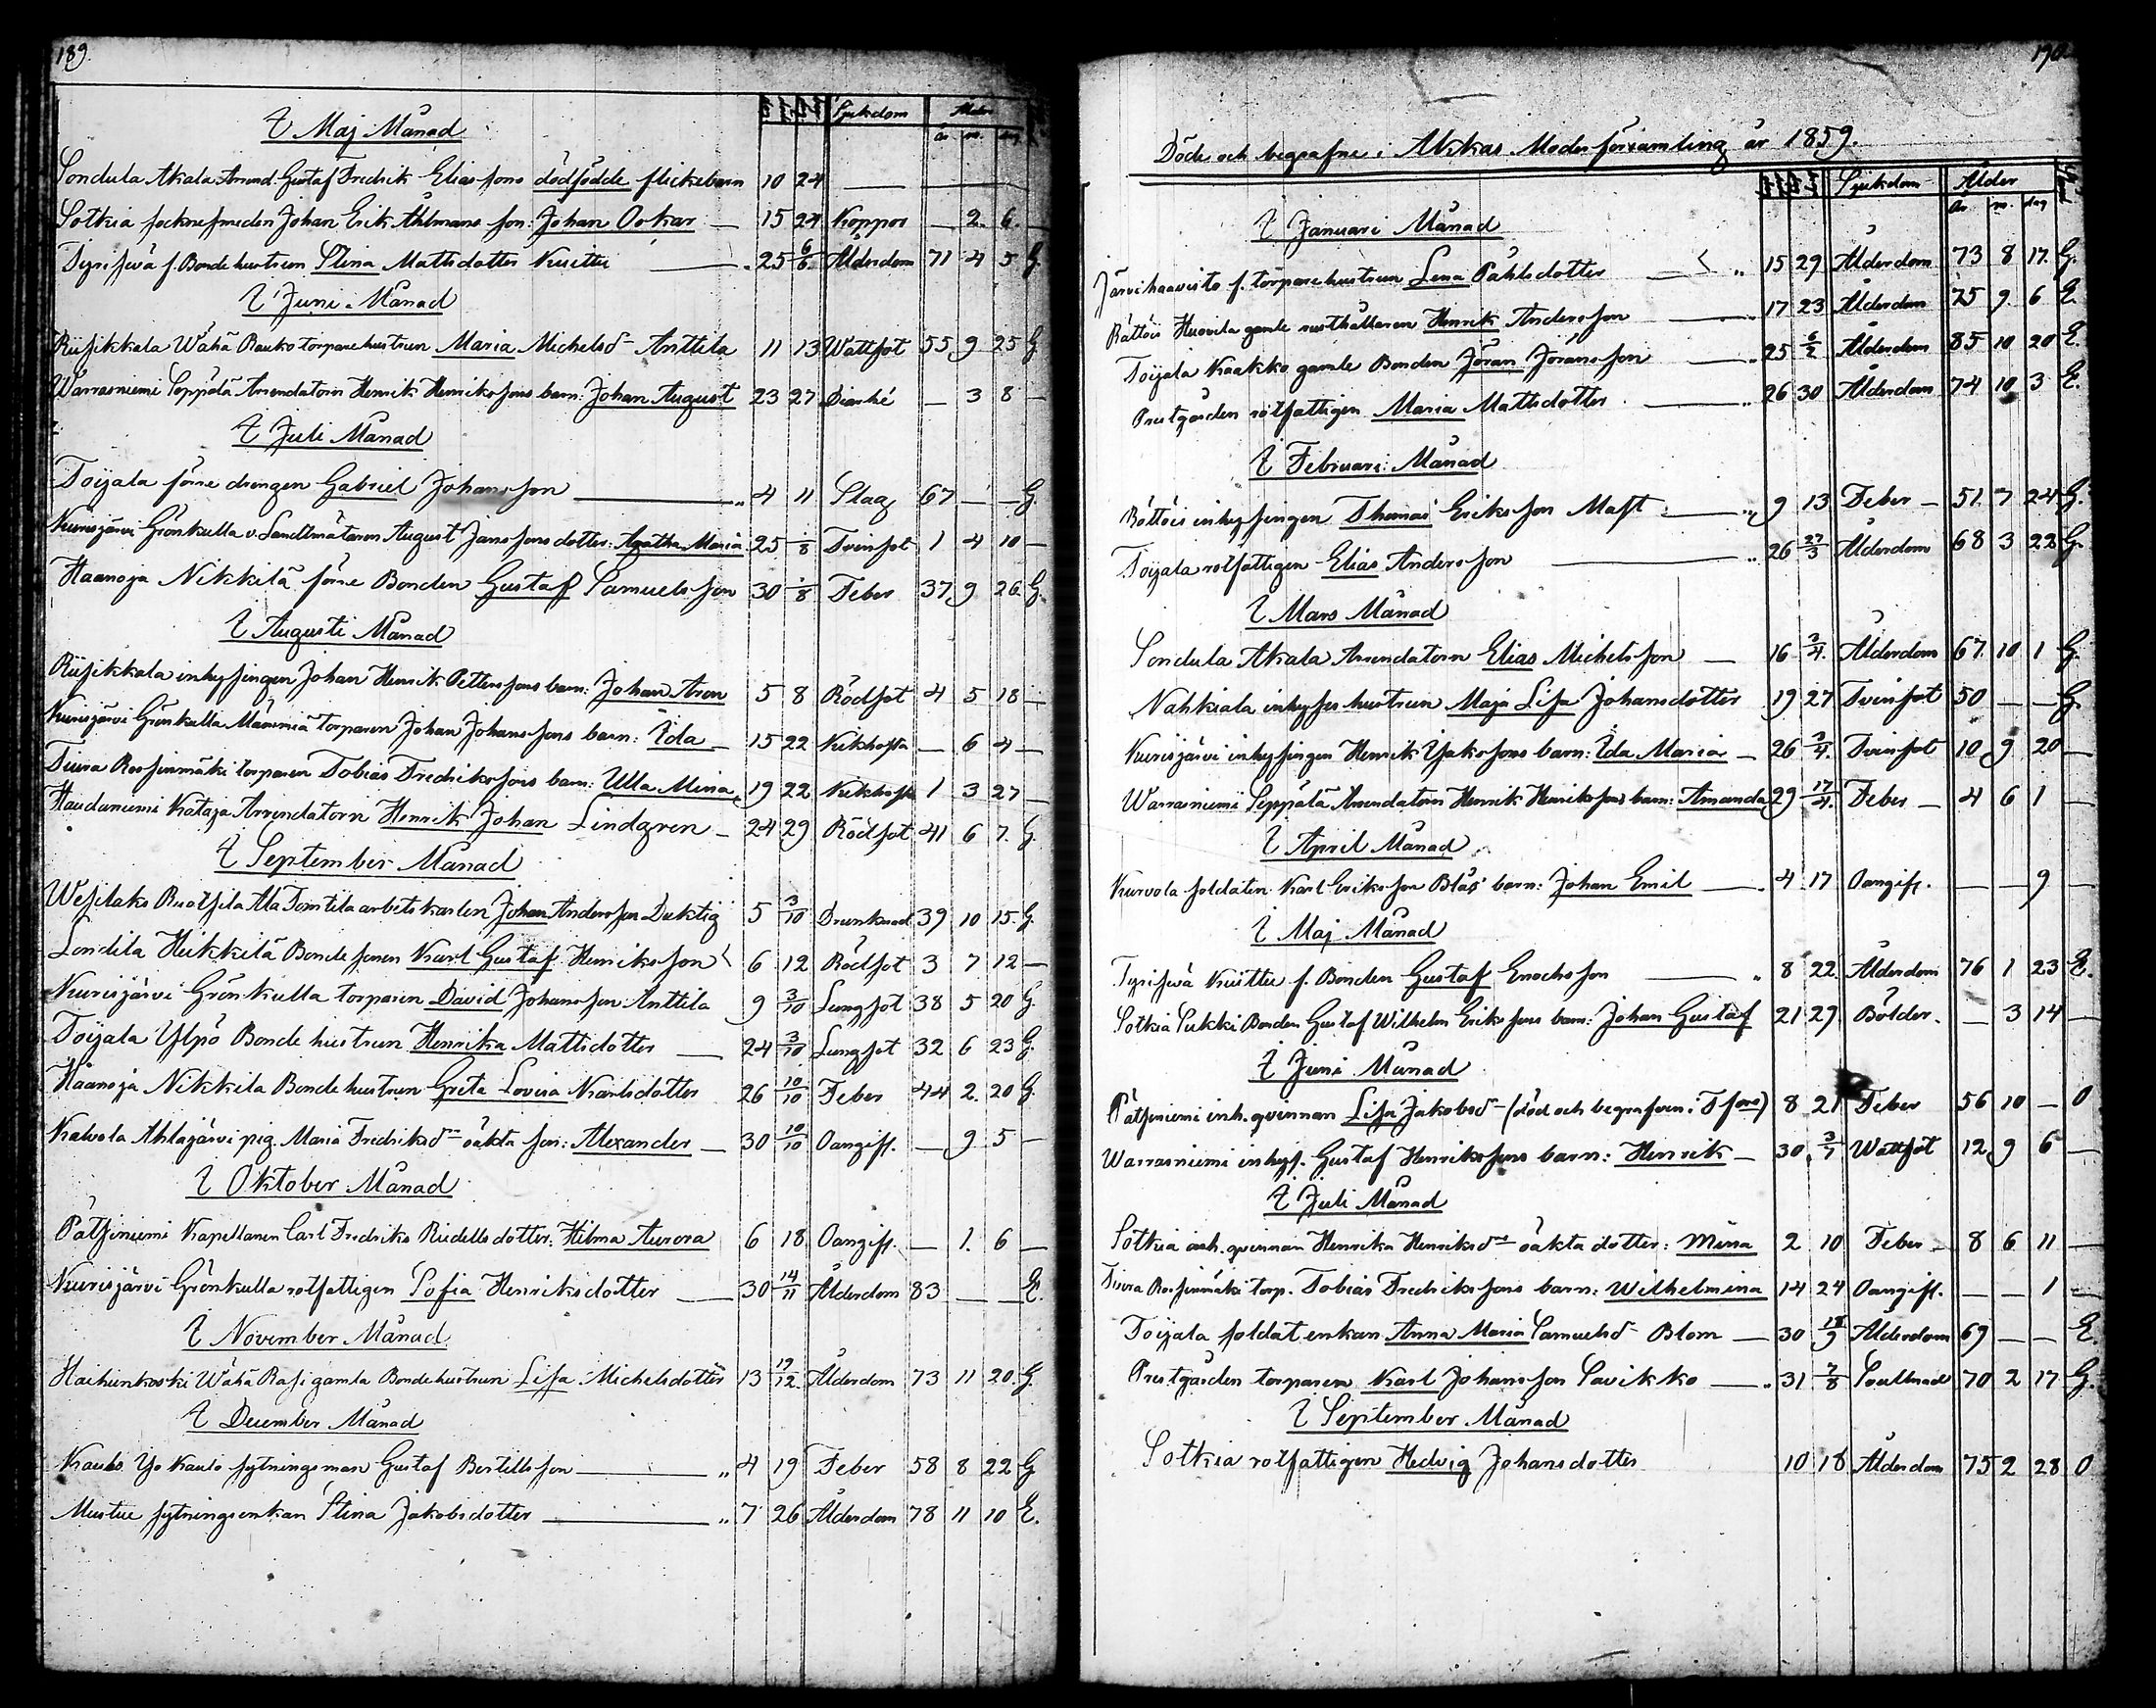 189.
Sjukdom Ålder
år m. dag
I Maj Månad
Sondula Akala Arrend. Gustaf Fredrik Eliassons dödfödde flickebarn 10 24 — —
Sotkia socknesmeden Johan Erik Åhlmans son: Johan Oskar — 15 24 Koppor — 2. 6. —
Tyrisevä f. Bonde hustrun Stina Mattsdotter Kuittu — 25 6/6 Ålderdom 71 4 5 G.
I Juni Månad
Riisikkala Wähä Rauko torpare hustrun Maria Michelsdr Anttila 11 13 Wattsot 55 9 25 G.
Warrasniemi Seppälä Arrendatorn Henrik Henrikssons barn: Johan August 23 27 Diarhé — 3 8 —
I Juli Månad
Toijala förre drengen Gabriel Johansson — 4 11 Slag 67 — — G.
Kurisjärvi Grönkulla v. Landtmätaren August Janssons dotter: Agatha Maria 25 /8 Tvinsot 1 4 10 —
Haanoja Nikkilä förre Bonden Gustaf Samuelsson 30 /8 Feber 37 9 26. G.
I Augusti Månad
Riisikkala inhysingen Johan Henrik Petterssons barn: Johan Aron 5 8 Rödsot 4 5 18 —
Kurisjärvi Grönkulla Mämmiä torparen Johan Johanssons barn: Ida — 15 22 Kikhosta — 6 4 —
Tiura Rossinmäki torparen Tobias Fredrikssons barn: Ulla Mina 19 22 Kikhosta 1 3 27 —
Haudaniemi Kataja Arrendatorn Henrik Johan Lindgren — 24 29 Rödsot 41 6 7. G.
I September Månad
Wesilaks Ruotsila Ala Tomtila arbetskarlen Johan Andersson Duktig 5 3/10 Drunknad 39 10 15. G.
Lontila Heikkilä Bonde sonen Karl Gustaf Henriksson 6 12 Rödsot 3 7 12 —
Kurisjärvi Grönkulla torparen David Johansson Anttila 9 3/10 Lungsot 38 5 20 G.
Toijala Ylpö Bonde hustrun Henrika Mattsdotter — 24 3/10 Lungsot 32 6 23 G.
Haanoja Nikkilä Bonde hustrun Greta Lovisa Karlsdotter 26 10/10 Feber 44 2. 20 G.
Kalvola Ahlajärvi pig. Maria Fredriksdrs oäkta son: Alexander — 30 10/10 Oangift. — 9 5 —
I Oktober Månad
Pätsiniemi Kapellanen Carl Fredriks Riedells dotter: Hilma Aurora 6 18 Oangift. — 1. 6 —
Kurisjärvi Grönkulla rotfattigen Sofia Henriksdotter — 30 14/11 Ålderdom 83 — — E.
I November Månad
Haihunkoski Wähä Rasi gamla Bonde hustrun Lisa Michelsdotter 13 19/12 Ålderdom 73 11 20. G.
I December Månad
Yso Kaulo sytningsman Gustaf Bertillsson — 4 19 Feber 58 8 22 G.
Mustue sytningsenkan Stina Jakobsdotter — 7 26 Ålderdom 78 11 10 E.
190.
Döde och begrafne i Akkas Moderförsamling år 1859.
Sjukdom Ålder
år m. dag
I Januari Månad
Järvihaavisto f. torpare hustrun Lena Påhlsdotter — 15 29 Ålderdom 73 8 17. G.
Rättöis Huovila gamle rusthållaren Henrik Andersson — 17 23 Ålderdom 75 9 6 E.
Toijala Kaakko gamle Bonden Jöran Jöransson — 25 6/2 Ålderdom 85 10 20 E.
Prestgården rotfattigen Maria Mattsdotter — 26 30 Ålderdom 74 10 3 E.
I Februari Månad
Rättöis inhysingen Thomas Eriksson Mast — 9 13 Feber — 51 7 24 G.
Toijala rotfattigen Elias Andersson — 26 27/3 Ålderdom 68 3 22 G.
I Mars Månad
Sondula Akala Arrendatorn Elias Michelsson — 16 3/4 Ålderdom 67 10 1 G.
Nahkiala inhyses hustrun Maja Lisa Johansdotter 19 27 Tvinsot 50 — — G.
Kurisjärvi inhysingen Henrik Jakssons barn: Ida Maria — 26 3/4 Tvinsot 10 9 20 —
Warrasniemi Seppälä Arrendatorn Henrik Henrikssons barn: Amanda 29 17/4 Feber — 4 6 1 —
I April Månad
Kurvola soldaten Karl Eriksson Blås barn: Johan Emil — 4 17 Oangift. — — 9 —
I Maj Månad
Tyrisevä Kuittu f. Bonden Gustaf Enochsson — 8 22 Ålderdom 76 1 23 E.
Sotkia Sukki Bonden Gustaf Wilhelm Erikssons barn: Johan Gustaf 21 29 Bölder. — 3 14 —
I Juni Månad
Pätsiniemi inh. qvinnan Lisa Jakobsdr (död och begrafven i Tfors) 8 21 Feber 56 10 — O
Warrasniemi inhys. Gustaf Henrikssons barn: Henrik — 30 3/7 Wattsot 12 9 6 —
I Juli Månad
Sotkia inh. qvinnan Henrika Henriksdrs oäkta dotter: Mina 2 10 Feber — 8 6 11 —
Tiura Rossinmäki torp. Tobias Fredrikssons barn: Wilhelmina 14 24 Oangift. — — 1 —
Toijala soldat enkan Anna Maria Samuelsdr Blom — 30 18/9 Ålderdom 69 — — E.
Prestgården torparen Karl Johansson Savikko — 31 7/8 Svullnad 70 2 17 G.
I September Månad
Sotkia rotfattigen Hedvig Johansdotter 10 18 Ålderdom 75 2 28 O